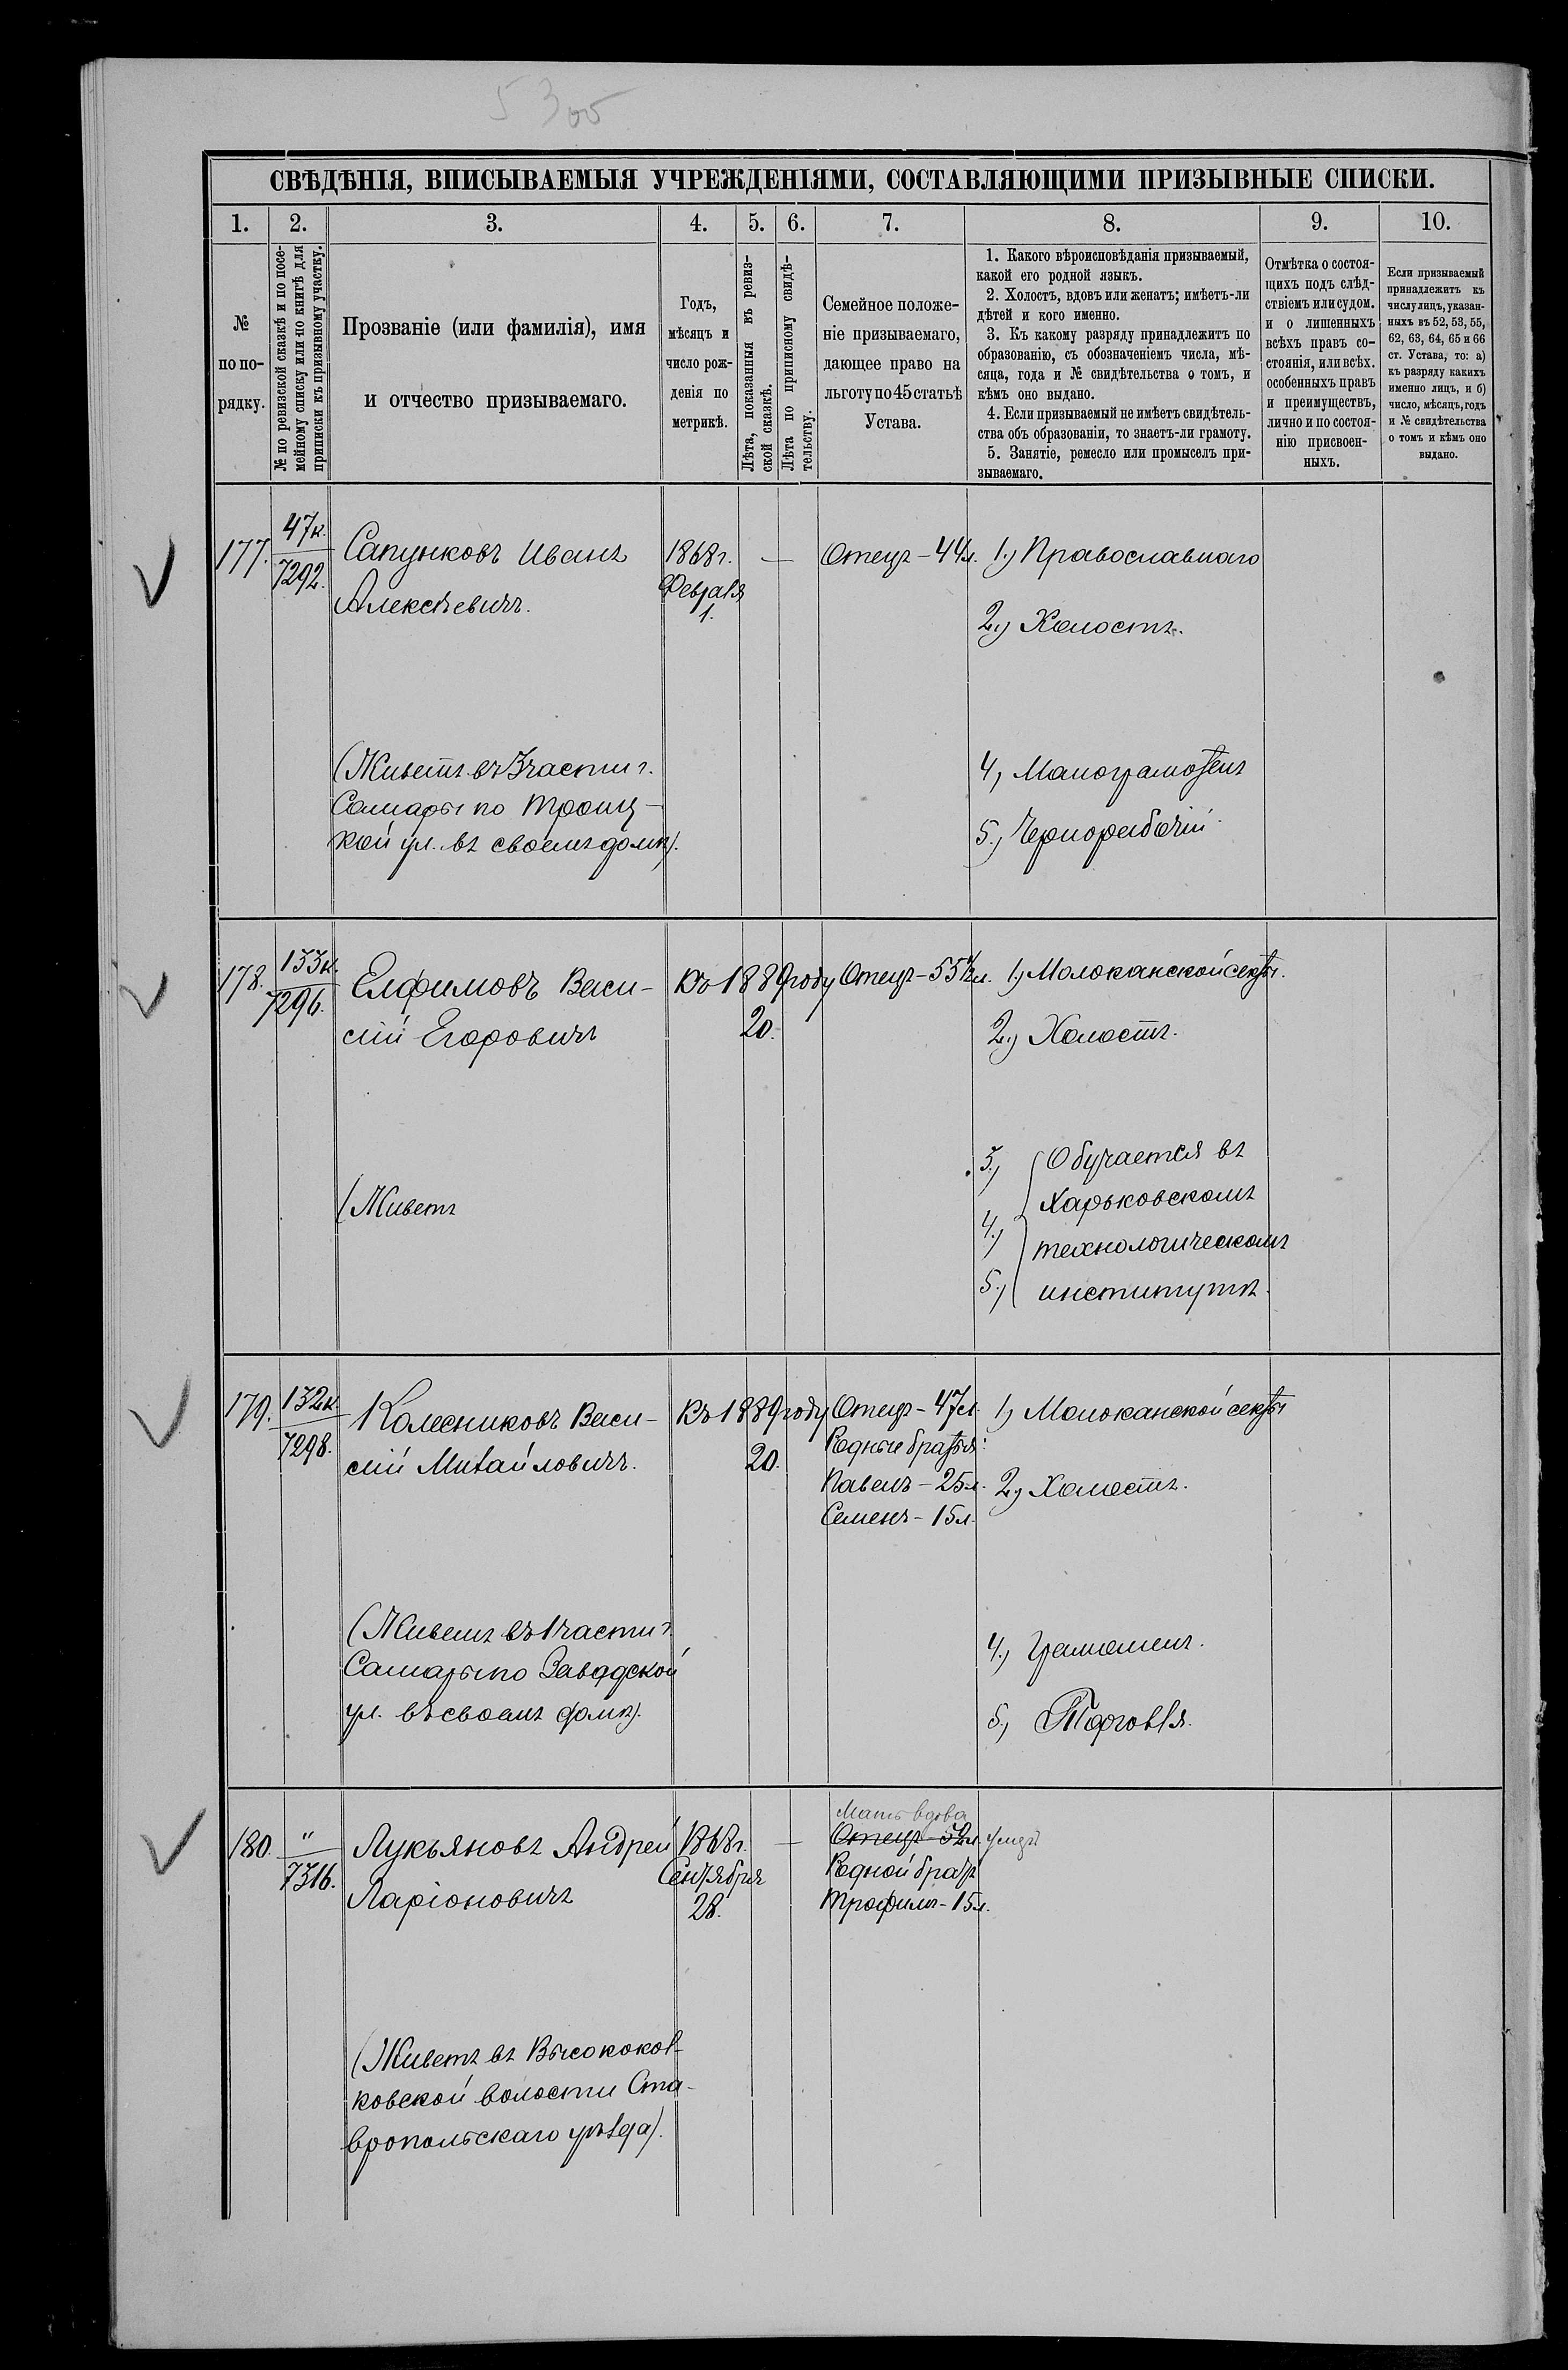 5300
СВѢДѢНІЯ, ВПИСЫВАЕМЫЯ УЧРЕЖДЕНІЯМИ, СОСТАВЛЯЮЩИМИ ПРИЗЫВНЫЕ СПИСКИ.
1. 2. 3. 4. 5. 6. 7. 8. 9. 10.
№
по по-
рядку.
№ по ревизской сказкѣ и по посе-
мейному списку или по книгѣ для
приписки къ призывному участку.
Прозваніе (или фамилія), имя
и отчество призываемаго.
Годъ,
мѣсяцъ и
число рож-
денія по
метрикѣ.
Лѣта, показанныя въ ревиз-
ской сказкѣ.
Лѣта по приписному свидѣ-
тельству.
Семейное положе-
ніе призываемаго,
дающее право на
льготу по 45 статьѣ
Устава.
1. Какого вѣроисповѣданія призываемый,
какой его родной языкъ.
2. Холостъ, вдовъ или женатъ; имѣетъ-ли
дѣтей и кого именно.
3. Къ какому разряду принадлежитъ по
образованію, съ обозначеніемъ числа, мѣ-
сяца, года и № свидѣтельства о томъ, и
кѣмъ оно выдано.
4. Если призываемый не имѣетъ свидѣтель-
ства объ образованіи, то знаетъ-ли грамоту.
5. Занятіе, ремесло или промыселъ при-
зываемаго.
Отмѣтка о состоя-
щихъ подъ слѣд-
ствіемъ или судом.
и о лишенныхъ
всѣхъ правъ со-
стоянія, или всѣх.
особенныхъ правъ
и преимуществъ,
лично и по состоя-
нію присвоен-
ныхъ.
Если призываемый
принадлежитъ къ
числу лицъ, указан-
ныхъ въ 52, 53, 55,
62, 63, 64, 65 и 66
ст. Устава, то: а)
къ разряду какихъ
именно лицъ, и б)
число, мѣсяцъ, годъ
и № свидѣтельства
о томъ и кѣмъ оно
выдано.
177.
47к.
7292.
Сапунковъ Иванъ
Алексѣевичъ.
1868г.
Февраля
1.
—
Отецъ - 44л.
1.) Православнаго
2.) Холостъ.
4, Малограмотенъ
5.) Чернорабочій
(Живетъ въ 3 части г.
Самары по Троиц-
кой ул. въ своемъ домѣ).
178.
133к.
7296.
Елфимовъ Васи-
лій Егоровичъ
Къ 1889 году
20.
Отецъ - 55½л.
1.) Молоканской секты.
2.) Холостъ.
3.)
4.)
5.)
Обучается въ
Харьковскомъ
технологическомъ
институтѣ.
(Живетъ
179.
132к
7298.
Колесниковъ Васи-
лій Михайловичъ.
Къ 1889 году
20.
Отецъ - 47л.
Родные братья:
Павелъ - 25л.
Семенъ - 15л.
1.) Молоканской секты
2.) Холостъ.
4.) Грамотенъ.
5.) Торговля.
(Живетъ въ 1 части г.
Самары по Заводской
ул. въ своемъ домѣ).
180.
"
7316.
Лукьяновъ Андрей
Ларіоновичъ
1868г.
Сентября
28.
—
Мать вдова
Отецъ - 52л. умеръ
Родной братъ
Трофимъ - 15л.
(Живетъ въ Высококол-
ковской волости Ста-
вропольскаго уѣзда).